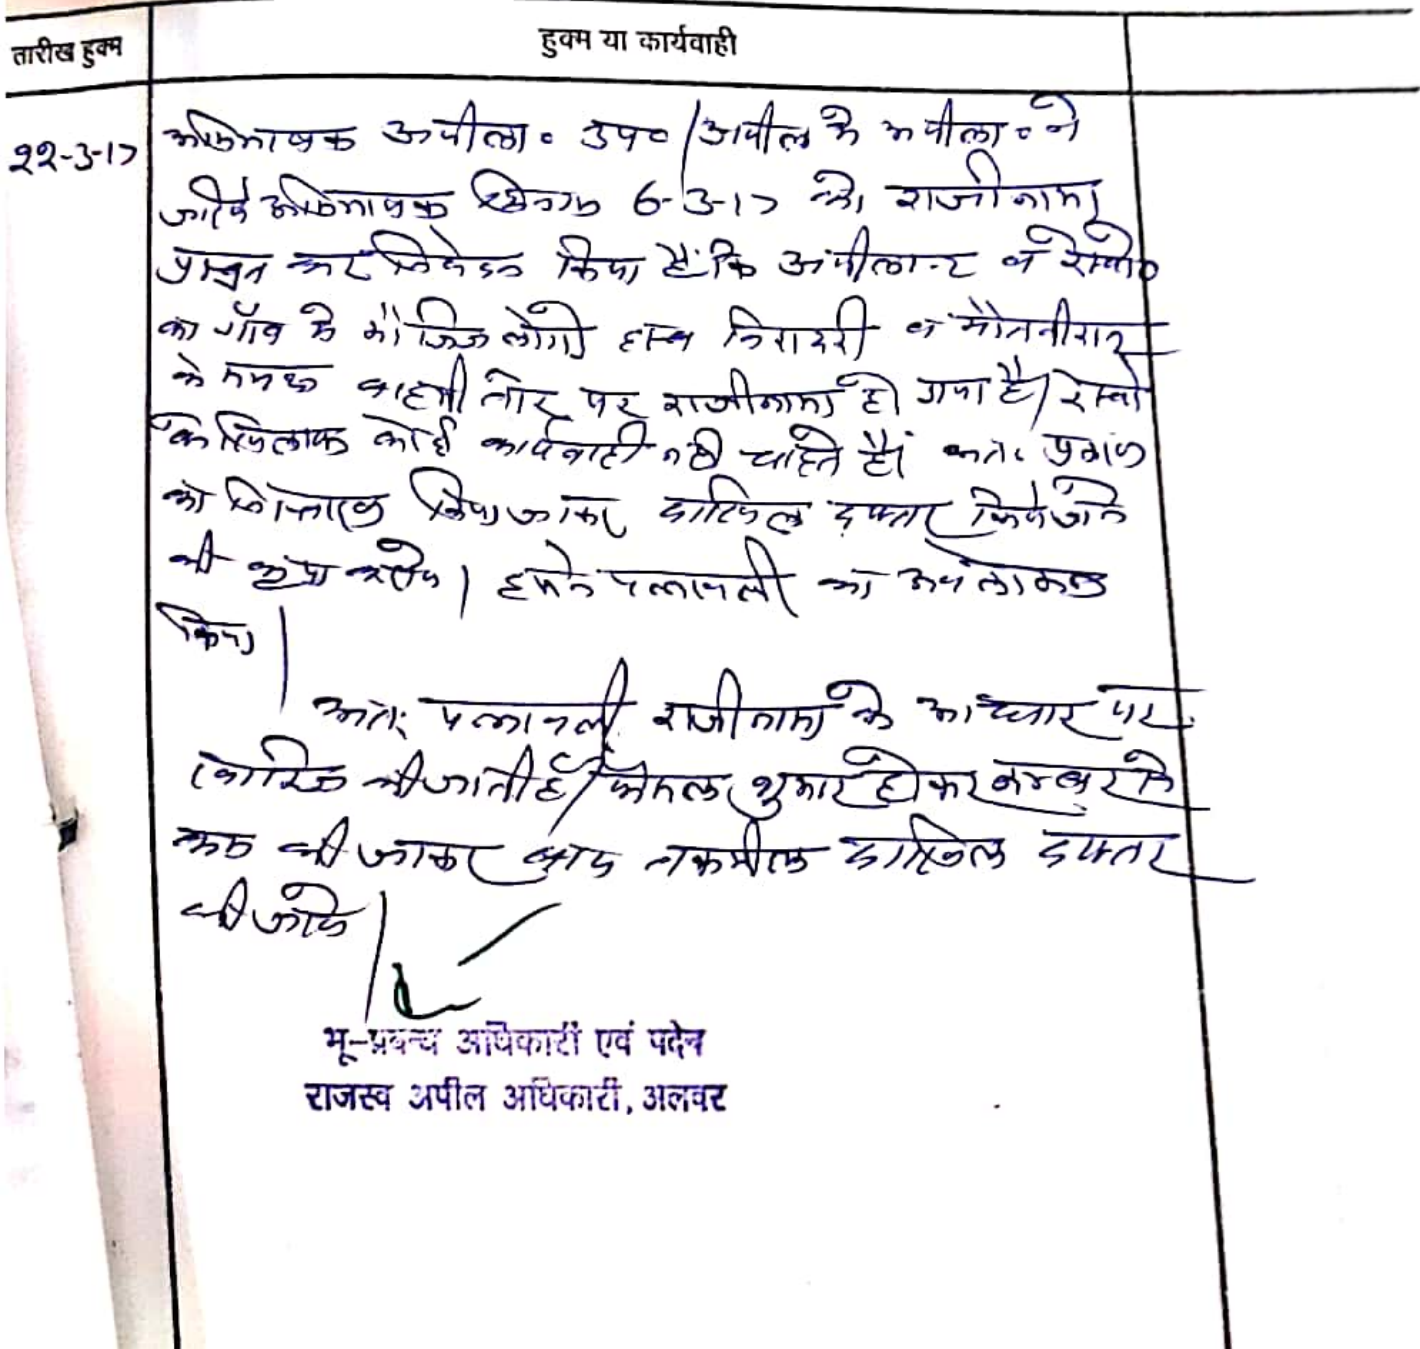 तारीख हुक्म
हुक्म या कार्यवाही
22-3-17
अभिभाषक अपीला० उप०/अपील के अपीला० ने
जरिये अभिभाषक दिनांक 6-3-17 को राजीनामा
प्रस्तुत कर निवेदन किया है कि अपीलान्ट व रेस्पो०
का गाँव के मौजिज लोगों व मौतबीरान
के समक्ष बाहमी तोर पर राजीनामा हो गया है/रेस्पो
के खिलाफ कोई कार्यवाही नही चाहते है। अतः प्रकरण
को किया जाकर दाखिल दफ्तर किये जाने
की कृपा करावे। हमने पत्रावली का अवलोकन
किया।
अतः पत्रावली राजीनामा के आधार पर
खारिज की जाती है/फैसल शुमार होकर नम्बर से
कम की जाकर बाद तकमील दाखिल दफ्तर
की जावे।
भू-प्रबन्ध अधिकारी एवं पदेन
राजस्व अपील अधिकारी, अलवर